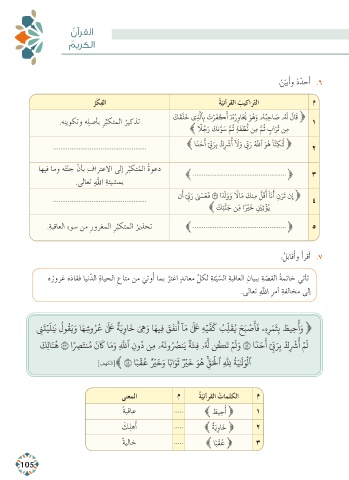 القرآن
الكريم
٦. أُحدِّدُ وأُبيِّنُ:
م التراكيبُ القرآنيّةُ الفِكَرُ
١ ﴿ قَالَ لَهُ صَاحِبُهُ وَهُوَ يُحَاوِرُهُ أَكَفَرْتَ بِالَّذِي خَلَقَكَ
مِن تُرَابٍ ثُمَّ مِن نُّطْفَةٍ ثُمَّ سَوَّاكَ رَجُلًا ﴾ تذكيرُ المتكبّرِ بأصلِهِ وتكوينِهِ.
٢ ﴿ لَّٰكِنَّا هُوَ اللَّهُ رَبِّي وَلَا أُشْرِكُ بِرَبِّي أَحَدًا ﴾ ..............................
٣ ﴿ .............................. ﴾ دعوةُ المتكبّرِ إلى الاعترافِ بأنَّ جنّتَه وما فيها
بمشيئةِ اللهِ تعالى.
٤ ﴿ إِن تَرَنِ أَنَا أَقَلَّ مِنكَ مَالًا وَوَلَدًا ۝ فَعَسَىٰ رَبِّي أَن
يُؤْتِيَنِ خَيْرًا مِّن جَنَّتِكَ ﴾ ..............................
٥ ﴿ .............................. ﴾ تحذيرُ المتكبّرِ المغرورِ من سوءِ العاقبةِ.
٧. أقرأُ وأُقابلُ:
تأتي خاتمةُ القصّةِ ببيانِ العاقبةِ السيّئةِ لكلِّ معاندٍ اغترَّ بما أُوتيَ من متاعِ الحياةِ الدنيا فقادَهُ غرورُه
إلى مخالفةِ أمرِ اللهِ تعالى.
﴿ وَأُحِيطَ بِثَمَرِهِ فَأَصْبَحَ يُقَلِّبُ كَفَّيْهِ عَلَىٰ مَا أَنفَقَ فِيهَا وَهِيَ خَاوِيَةٌ عَلَىٰ عُرُوشِهَا وَيَقُولُ يَا لَيْتَنِي
لَمْ أُشْرِكْ بِرَبِّي أَحَدًا ۝ وَلَمْ تَكُن لَّهُ فِئَةٌ يَنصُرُونَهُ مِن دُونِ اللَّهِ وَمَا كَانَ مُنتَصِرًا ۝ هُنَالِكَ
الْوَلَايَةُ لِلَّهِ الْحَقِّ هُوَ خَيْرٌ ثَوَابًا وَخَيْرٌ عُقْبًا ﴾ [الكهف]
م الكلماتُ القرآنيّةُ م المعنى
١ ﴿ أُحِيطَ ﴾ ..... عاقبةً
٢ ﴿ خَاوِيَةٌ ﴾ ..... أُهلِكَ
٣ ﴿ عُقْبًا ﴾ ..... خاليةٌ
105